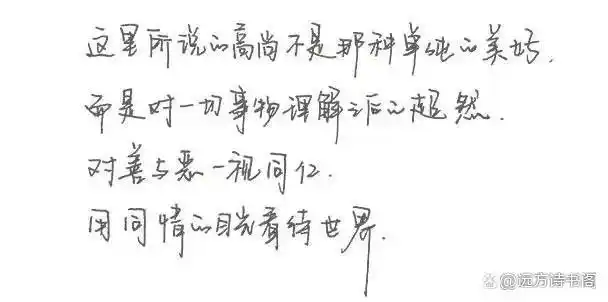 这里所说的高尚不是那种单纯的美好，
而是对一切事物理解之后的超然．
对善与恶一视同仁．
用同情的目光看待世界．
@远方诗书阁